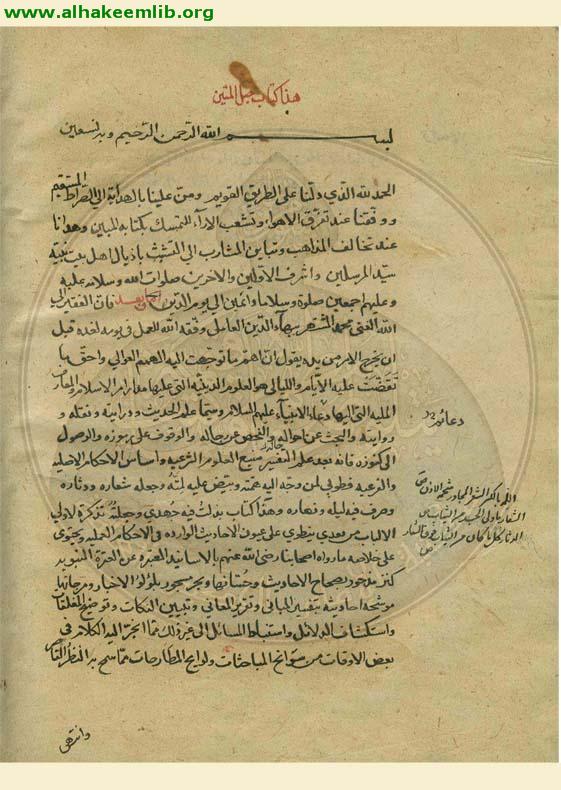 www.alhakeemlib.org
هذا كتاب حبل المتين
بسم الله الرحمن الرحيم وبه نستعين
الحمد لله الذي دلنا على الطريق القويم ومن علينا بالهداية الى الصراط المستقيم
ووفقنا عند تفرق الاهواء وتشعب الاراء للتمسك بكتابه المبين وهدانا
عند تخالف المذاهب وتباين المشارب الى التشبث باذيال اهل بيت نبيه
سيد المرسلين واشرف الاولين والاخرين صلوات الله وسلامه عليه
وعليهم اجمعين صلوة وسلاما دائمين الى يوم الدين اما بعد فان الفقير الى
الله الغني محمد المشتهر ببهاء الدين العاملي وفقه الله للعمل في يومه لغده قبل
ان يخرج الامر من يده يقول ان اهم ما توجهت اليه الهمم العوالي واحق ما
تقضت عليه الايام والليالي هو العلوم الدينية التي عليها مدار الاسلام والمعارف
الملية التي اليها دعا الانبياء عليهم السلام وسيما علم الحديث ودرايته ونقله و
روايته والبحث عن احواله والفحص عن رجاله والوقوف على رموزه والوصول
الى كنوزه فانه بعد علم التفسير منبع العلوم الشرعية واساس الاحكام الاصلية
والفرعية فطوبى لمن وجه اليه همته وبيض عليه لمته وجعله شعاره ودثاره
وصرف فيه ليله ونهاره وهذا كتاب بذلت فيه جهدي وجعلته تذكرة لاولي
الالباب من بعدي ينطوي على عيون الاحاديث الواردة في الاحكام العملية ويحتوي
على خلاصة ما رواه اصحابنا رضي الله عنهم بالاسانيد المعتبرة عن العترة النبوية
كنز مذخور بصحاح الاحاديث وحسانها وبحر مسجور بلؤلؤ الاخبار ومرجانها
موشحة احاديثه بتفسير المباني وتقرير المعاني وتبيين النكات وتوضيح المغلقات
واستكشاف الدلائل واستنباط المسائل الى غير ذلك مما انجر اليه الكلام في
بعض الاوقات من سوانح المباحثات ولوايح المطارحات مما سمح به النظر القاصر
دعائم
وانتهى